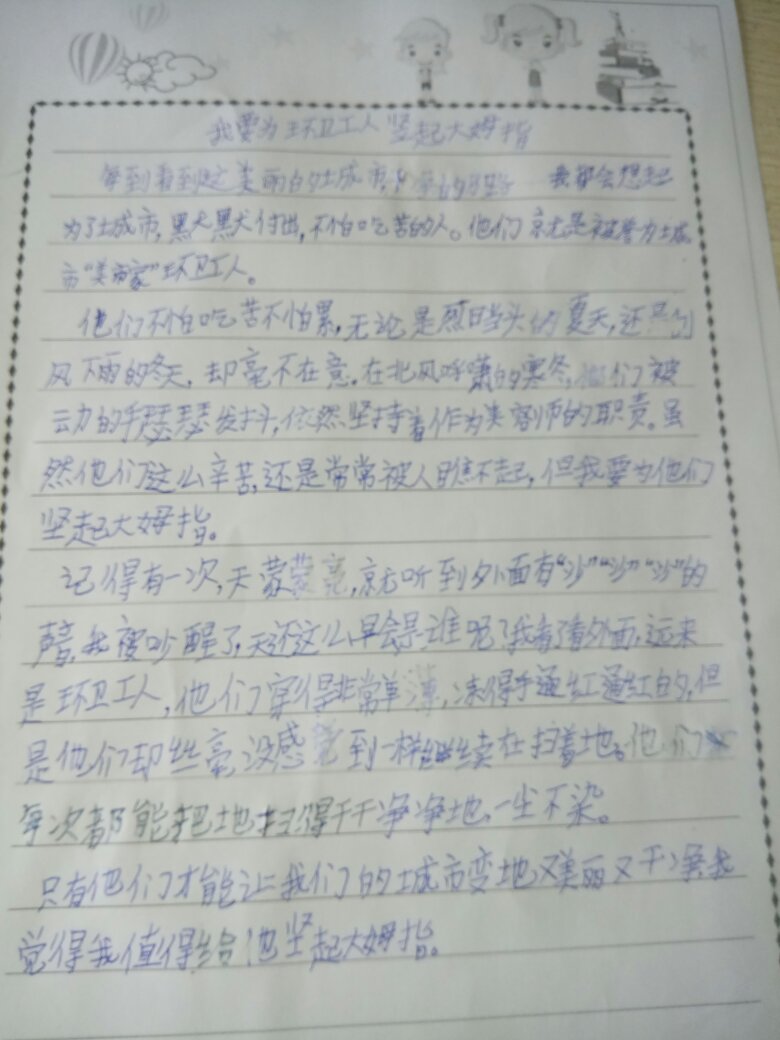 我要为环卫工人竖起大姆指
每到看到这美丽的城市,净的马路 我都会想起
为了城市,默默付出,不怕吃苦的人。他们就是被誉为城
市“美容家”环卫工人。
他们不怕吃苦不怕累,无论是烈日当头的夏天,还是刮
风下雨的冬天,却毫不在意。在北风呼啸的寒冬,他们被
云力的手瑟瑟发抖,依然坚持着作为美容师的职责。虽
然他们这么辛苦,还是常常被人瞧不起,但我要为他们
竖起大姆指。
记得有一次,天蒙蒙亮,就听到外面有“沙”“沙”“沙”的
声音,我被吵醒了,天还这么早会是谁呢?我看了看外面,远来
是环卫工人,他们穿得非常单薄,冻得手通红通红的,但
是他们却丝毫没感觉到一样继续在扫着地。他们
每次都能把地扫得干干净净地,一尘不染。
只有他们才能让我们的城市变地又美丽又干净我
觉得我值得给他竖起大姆指。